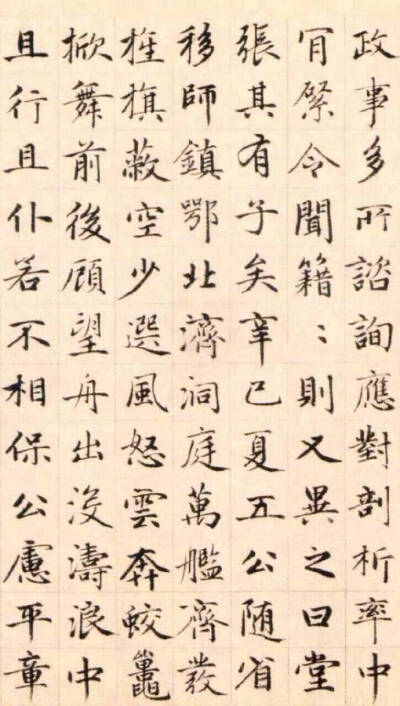 政事多所諮詢應對剖析率中
肎綮令聞籍〻則又異之曰堂
張其有子矣辛巳夏五公随省
移師鎮鄂北濟洞庭萬艦齊發
旌旗蔽空少選風怒雲奔蛟鼉
掀舞前後顧望舟出没濤浪中
且行且仆若不相保公慮平章